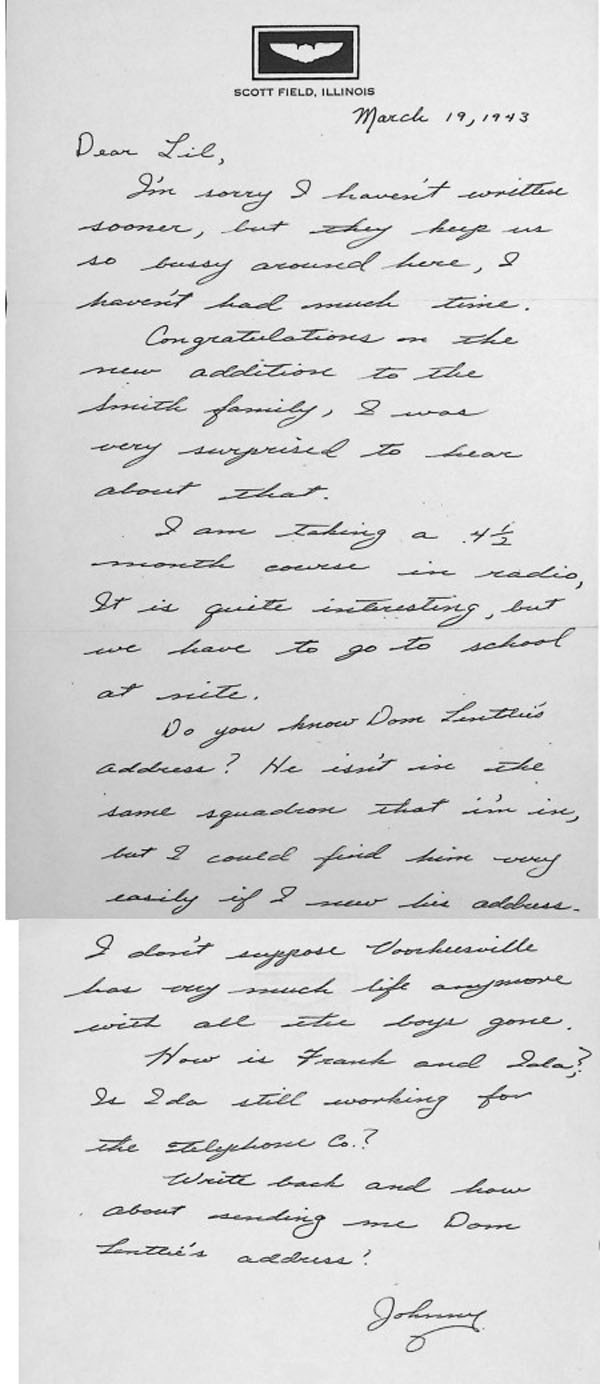 SCOTT FIELD, ILLINOIS
March 19, 1943
Dear Lil,
I'm sorry I haven't written
sooner, but they keep us
so bussy around here, I
haven't had much time.
Congratulations on the
new addition to the
Smith family, I was
very surprised to hear
about that.
I am taking a 4½
month course in radio,
It is quite interesting, but
we have to go to school
at nite.
Do you know Dom Lenttie's
address? He isn't in the
same squadron that i'm in,
but I could find him very
easily if I new his address.
I don't suppose Voorheesville
has very much life anymore
with all the boys gone.
How is Frank and Ida?
Is Ida still working for
the telephone Co.?
Write back and how
about sending me Dom
Lenttie's address?
Johnny